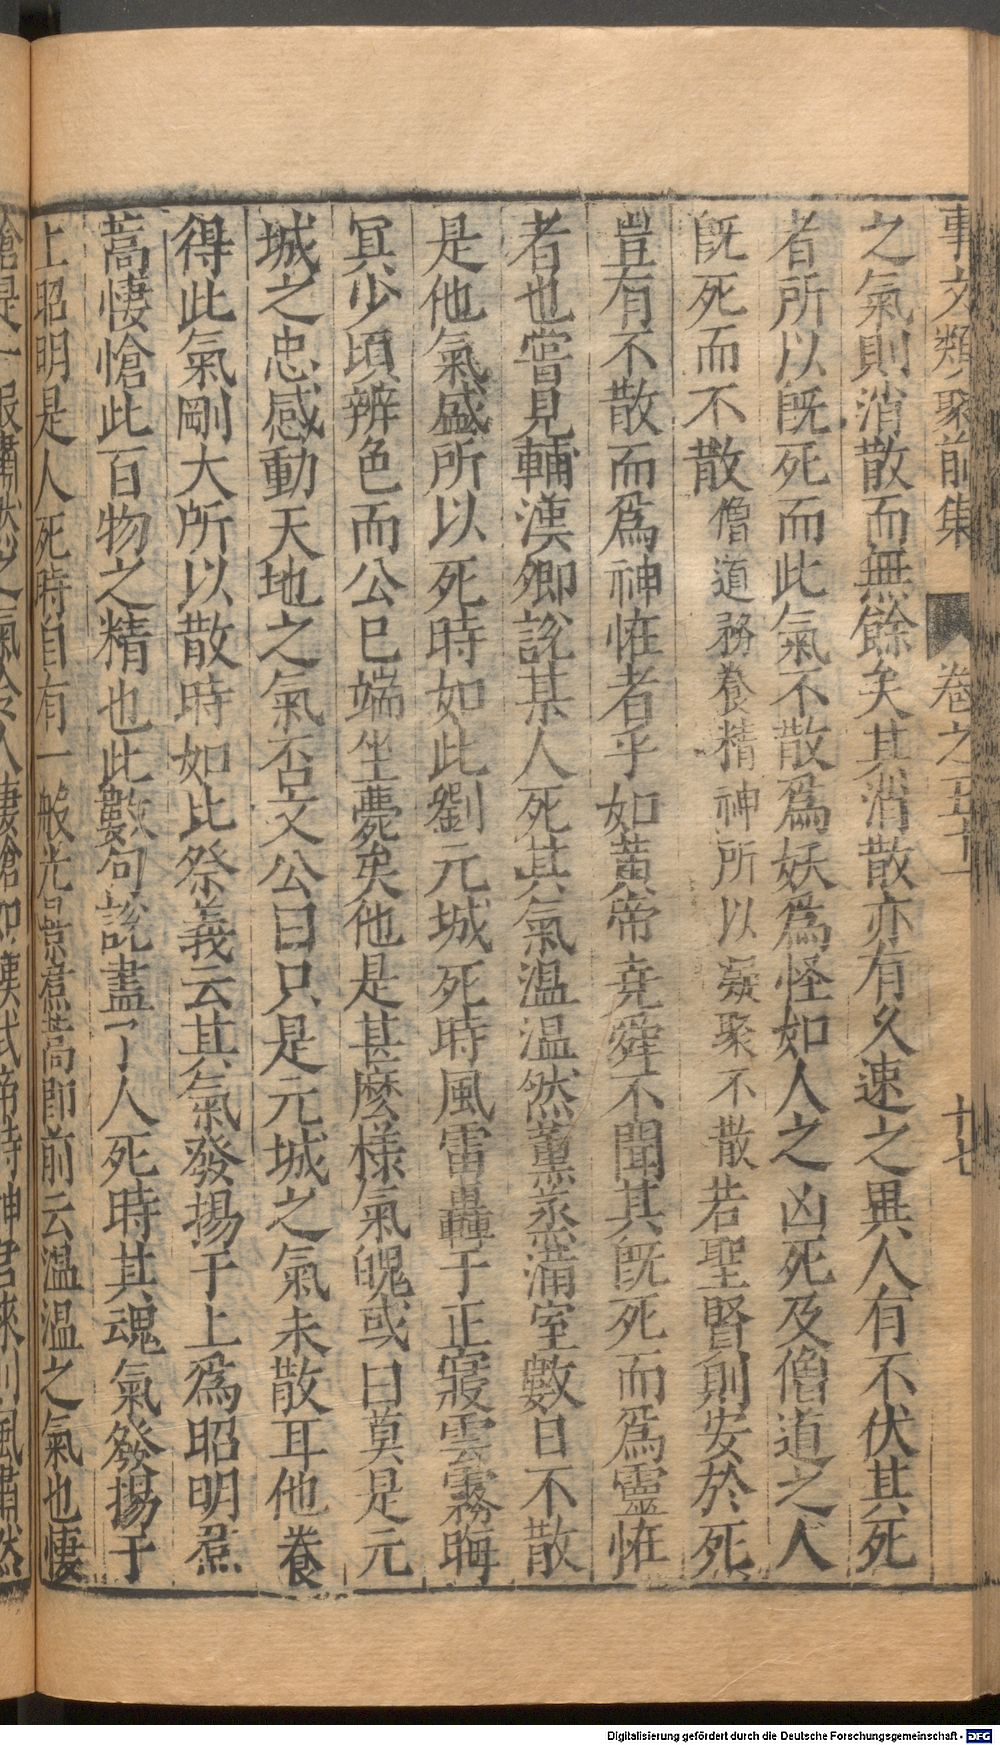 事文類聚前集　卷之五十一　十七
之氣則消散而無餘矣其消散亦有久速之異人有不伏其死
者所以旣死而此氣不散爲妖爲怪如人之凶死及僧道之人
旣死而不散僧道務養精神所以凝聚不散若聖賢則安於死
豈有不散而爲神恠者乎如黃帝堯舜不聞其旣死而爲靈恠
者也嘗見輔漢卿說某人死其氣温温然薰蒸滿室數日不散
是他氣盛所以死時如此劉元城死時風雷轟于正寢雲霧晦
冥少頃辨色而公已端坐薨矣他是甚麽樣氣魄或曰莫是元
城之忠感動天地之氣否文公曰只是元城之氣未散耳他養
得此氣剛大所以散時如此祭義云其氣發揚于上爲昭明焄
蒿悽愴此百物之精也此數句說盡了人死時其魂氣發揚于
上昭明是人死時自有一般光景焄蒿卽前云温温之氣也悽
愴是一般肅然之氣令人悽愴如漢武帝時神君來則風肅然
Digitalisierung gefördert durch die Deutsche Forschungsgemeinschaft - DFG